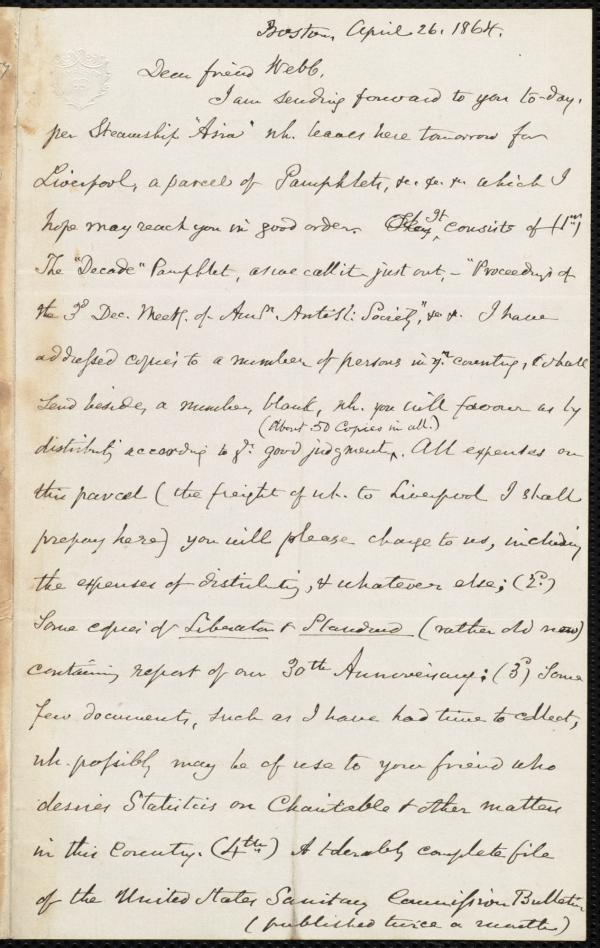 Boston, April 26. 1864.
Dear friend Webb,
I am sending forward to you to-day,
per Steamship "Asia" wh. leaves here tomorrow for
Liverpool, a parcel of Pamphlets, &c. &c. &c. which I
hope may reach you in good order. They It consists of (1st)
The "Decade" Pamphlet, as we call it, just out, – "Proceedings of
the 3d Dec. Meetg. of Amn. Anti-Sl: Society", &c. &c. I have
addressed copies to a number of persons in yr. country, & shall
send beside, a number, blank, wh. you will favour us by
(About 50 Copies in all.)
distributg according to yr. good judgment. All expenses on
this parcel (the freight of wh. to Liverpool I shall
prepay here) you will please charge to us, including
the expenses of distributing, & whatever else; (2d.)
Some copies of Liberator & Standard (rather old now)
containing report of our 30th Anniversary; (3d) Some
few documents, such as I have had time to collect,
wh. possibly may be of use to your friend who
desires Statistics on Charitable & other matters
in this Country. (4th) A tolerably complete file
of the United States Sanitary Commission Bulletin
(published twice a month)